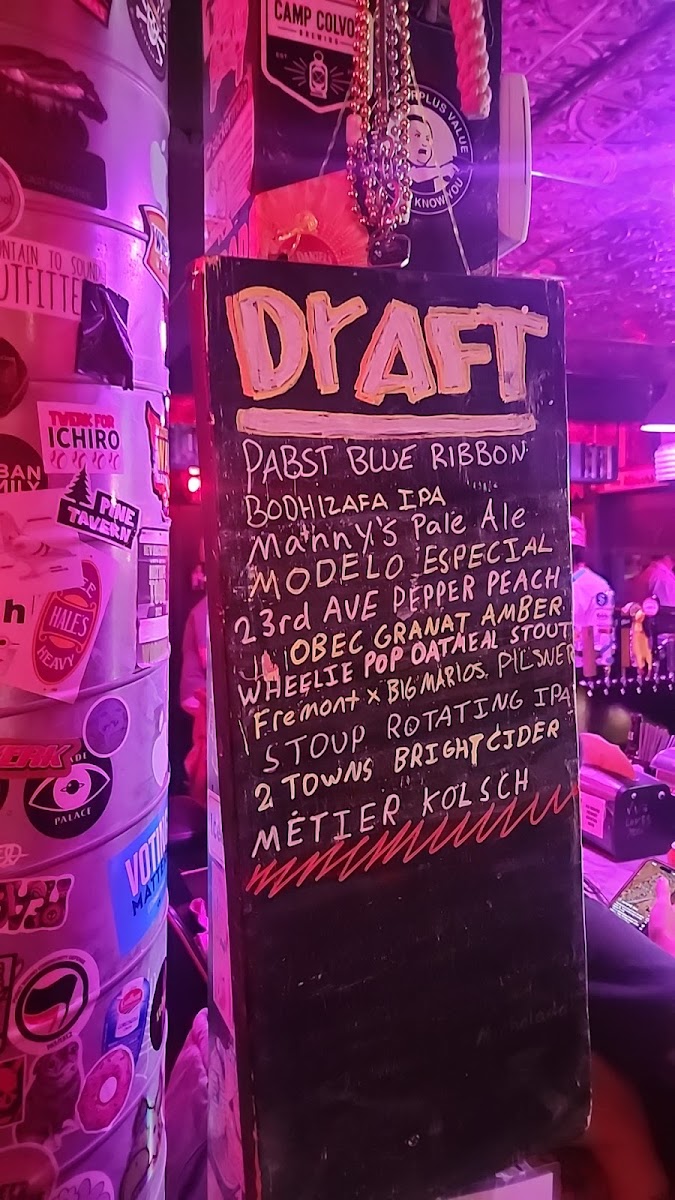 CAMP COLVO
BREWING
EST
RPLUS VALUE
KNOW YOU
NTAIN TO SOUND
UTFITTE
TWERK FOR
ICHIRO
BAN
MILY
PINE
TAVERN
HALE'S
HEAVY
PALACE
VOTING
MATTERS
DRAFT
PABST BLUE RIBBON
BODHIZAFA IPA
Manny's Pale Ale
MODELO ESPECIAL
23rd AVE DEPPER PEACH
OBEC GRANAT AMBER
WHEELIE POP OATMEAL STOUT
Fremont x BIG MARIOS PILSNER
STOUP ROTATING IPA
2 TOWNS BRIGHT CIDER
MÉTIER KOLSCH